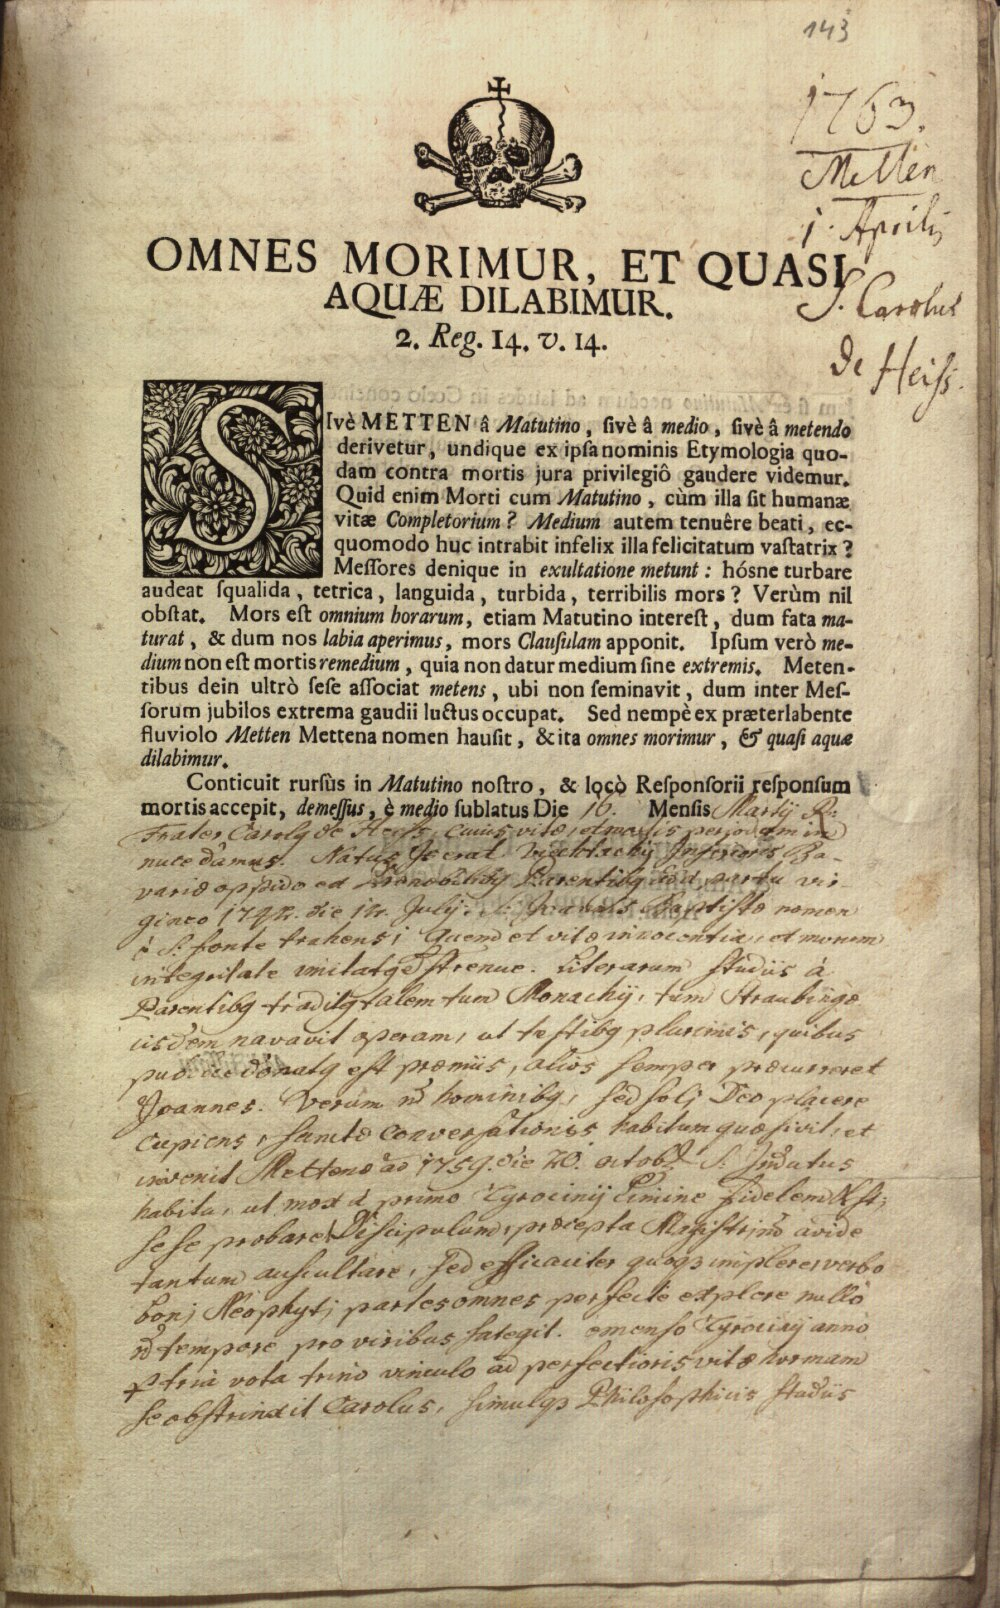 143
1763.
Metten
1. Aprilis
F. Carolus
de Heiss.
OMNES MORIMUR, ET QUASI
AQUÆ DILABIMUR.
2. Reg. 14. v. 14.
SIvè METTEN â Matutino, sivè â medio, sivè â metendo
derivetur, undique ex ipsa nominis Etymologia quo-
dam contra mortis jura privilegiô gaudere videmur.
Quid enim Morti cum Matutino, cùm illa sit humanæ
vitæ Completorium? Medium autem tenuêre beati, ec-
quomodo huc intrabit infelix illa felicitatum vastatrix?
Messores denique in exultatione metunt: hósne turbare
audeat squalida, tetrica, languida, turbida, terribilis mors? Verùm nil
obstat. Mors est omnium horarum, etiam Matutino interest, dum fata ma-
turat, & dum nos labia aperimus, mors Clausulam apponit. Ipsum verò me-
dium non est mortis remedium, quia non datur medium sine extremis. Meten-
tibus dein ultrò sese associat metens, ubi non seminavit, dum inter Mes-
sorum jubilos extrema gaudii luctus occupat. Sed nempè ex præterlabente
fluviolo Metten Mettena nomen hausit, & ita omnes morimur, & quasi aquæ
dilabimur.
Conticuit rursùs in Matutino nostro, & locò Responsorii responsum
mortis accepit, demessus, è medio sublatus Die 16. Mensis Martij R.
Frater Carolq de Heiss, cuius vitæ, et mortis periodum in
nuce damus. Natus is erat Viechtachij Inferioris Ba-
variæ oppido ex Parentibq partu vir-
gineo 1742. die 12. Julij. S. Joannis Baptistæ nomen
è S. fonte trahens; quem et vitæ innocentia, et morum
integritate imitatq est strenue. Literarum studiis à
Parentibq traditq talem tum Monachij, tum Straubingæ
iisdem navavit operam, ut testibq plurimis, quibus
publice donatq est præmiis, alios semper præcurreret
Joannes. Verùm non hominibq, sed soli Deo placere
cupiens, sanctæ conversationis habitum quæsivit, et
invenit Mettenæ ad 1759. die 20. octob. S. Indutus
habitu, ut mox à primo Tyrocinij limine fidelem Xsti
sese probaret Discipulum, præcepta Magistri non avide
tantum auscultare, sed efficaciter quoqz implere, verbo
boni Neophyti partes omnes perfecte explere nullo
non tempore pro viribus sategit. emenso Tyrocinij anno
per tria vota trino vinculo ad perfectioris vitæ normam
se obstrinxit Carolus, simulqz Philosophicis studiis